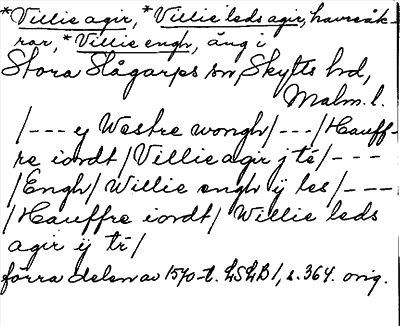 *Villie agir, *Villie leds agir, havreåk-
rar, *Villie engh, äng i
Stora Slågarps sn, Skytts hd,
Malm. l.
/--- ÿ Westre wongh/---/Hauff-
re iordt/Villie agir j té/---
/Engh/ Willie engh ÿ les/---
/Hauffre iordt/ Willie leds
agir ÿ tr/
förra delen av 1570-t. LSLB1, s. 364. orig.